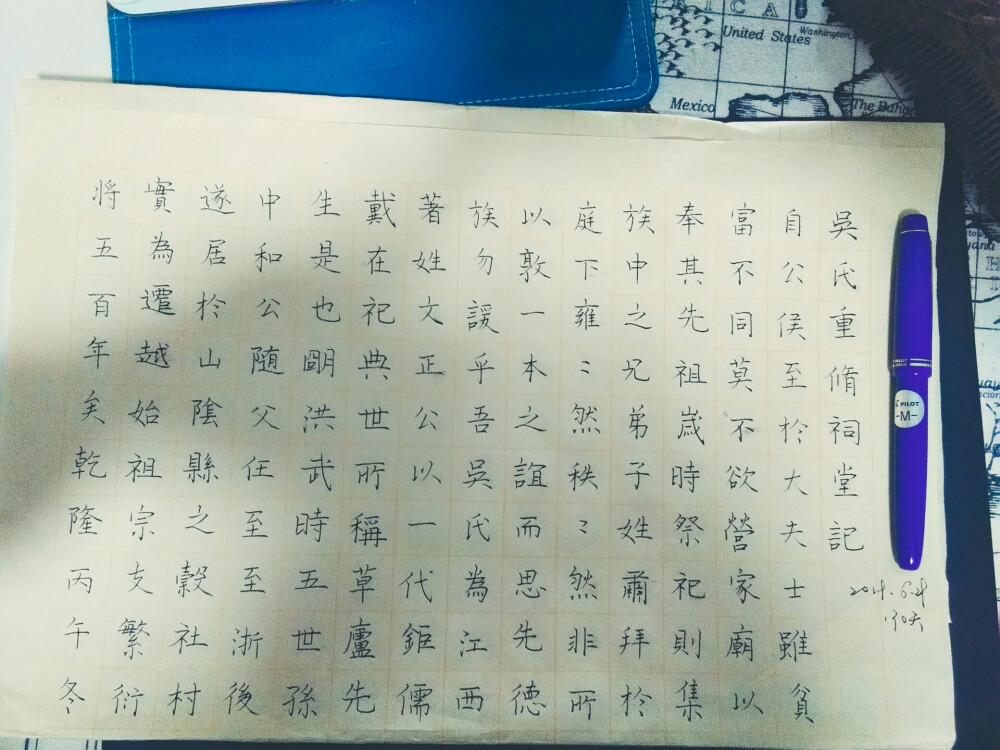 吳氏重脩祠堂記
自公侯至於大夫士雖貧
富不同莫不欲營家廟以
奉其先祖歲時祭祀則集
族中之兄弟子姓肅拜於
庭下雍〻然秩〻然非所
以敦一本之誼而思先德
族勿諼乎吾吳氏為江西
著姓文正公以一代鉅儒
戴在祀典世所稱草廬先
生是也明洪武時五世孫
中和公隨父任至浙後
遂居於山陰縣之穀社村
實為遷越始祖宗支繁衍
將五百年矣乾隆丙午冬
30天
PILOT
-M-
United States
Washington
Mexico